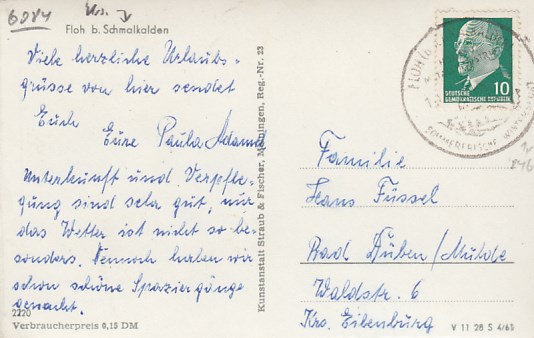 6084
Floh b. Schmalkalden
Viele herzliche Urlaubs-
grüsse von hier sendet
Euch
Eure Paula Adamus
Unterkunft und Verpfle-
gung sind sehr gut, nur
das Wetter ist nicht so be-
sonders. Dennoch haben wir
schon schöne Spaziergänge
gemacht.
2220
Verbraucherpreis 0,15 DM
Kunstanstalt Straub & Fischer, Meiningen, Reg.-Nr. 23
DEUTSCHE
DEMOKRATISCHE REPUBLIK
10
FLOH
SOMMERFRISCHE
Familie
Hans Füssel
Bad Düben/Mulde
Waldstr. 6
Krs. Eilenburg
V 11 28 S 4/63